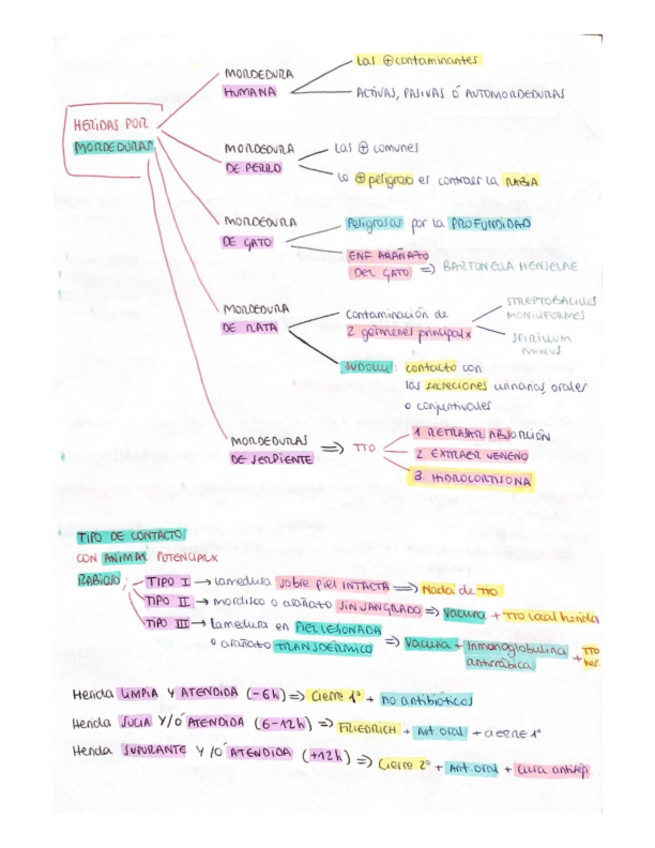 HERIDAS POR
MORDEDURAS
MORDEDURA
HUMANA
Las ⊕ contaminantes
ACTIVAS, PASIVAS Ó AUTOMORDEDURAS
MORDEDURA
DE PERRO
Las ⊕ comunes
Lo ⊕ peligroso es contraer la RABIA
MORDEDURA
DE GATO
Peligrosas por la PROFUNDIDAD
ENF ARAÑAZO
DEL GATO => BARTONELLA HENSELAE
MORDEDURA
DE RATA
Contaminación de
2 gérmenes principalx
STREPTOBACILLUS
MONILIFORMES
SPIRILLUM
MINUS
SUDOKU: contacto con
las secreciones urinarias, orales
o conjuntivales
MORDEDURAS
DE SERPIENTE => TTO
1. RETRASAR ABSORCIÓN
2. EXTRAER VENENO
3. HIDROCORTISONA
TIPO DE CONTACTO
CON ANIMAL POTENCIALX
RABIOSO:
TIPO I → Lamedura sobre piel INTACTA => Nada de TTO
TIPO II → mordisco o arañazo SIN SANGRADO => Vacuna + TTO local herida
TIPO III → Lamedura en PIEL LESIONADA
o arañazo TRANSDÉRMICO => Vacuna + Inmonoglobulina antirrábica + TTO her.
Herida LIMPIA Y ATENDIDA (-6h) => Cierre 1º + no antibióticos
Herida SUCIA Y/Ó ATENDIDA (6-12h) => FRIEDRICH + Ant. oral + cierre 1º
Herida SUPURANTE Y/Ó ATENDIDA (+12h) => Cierre 2º + Ant. oral + Cura antisép.